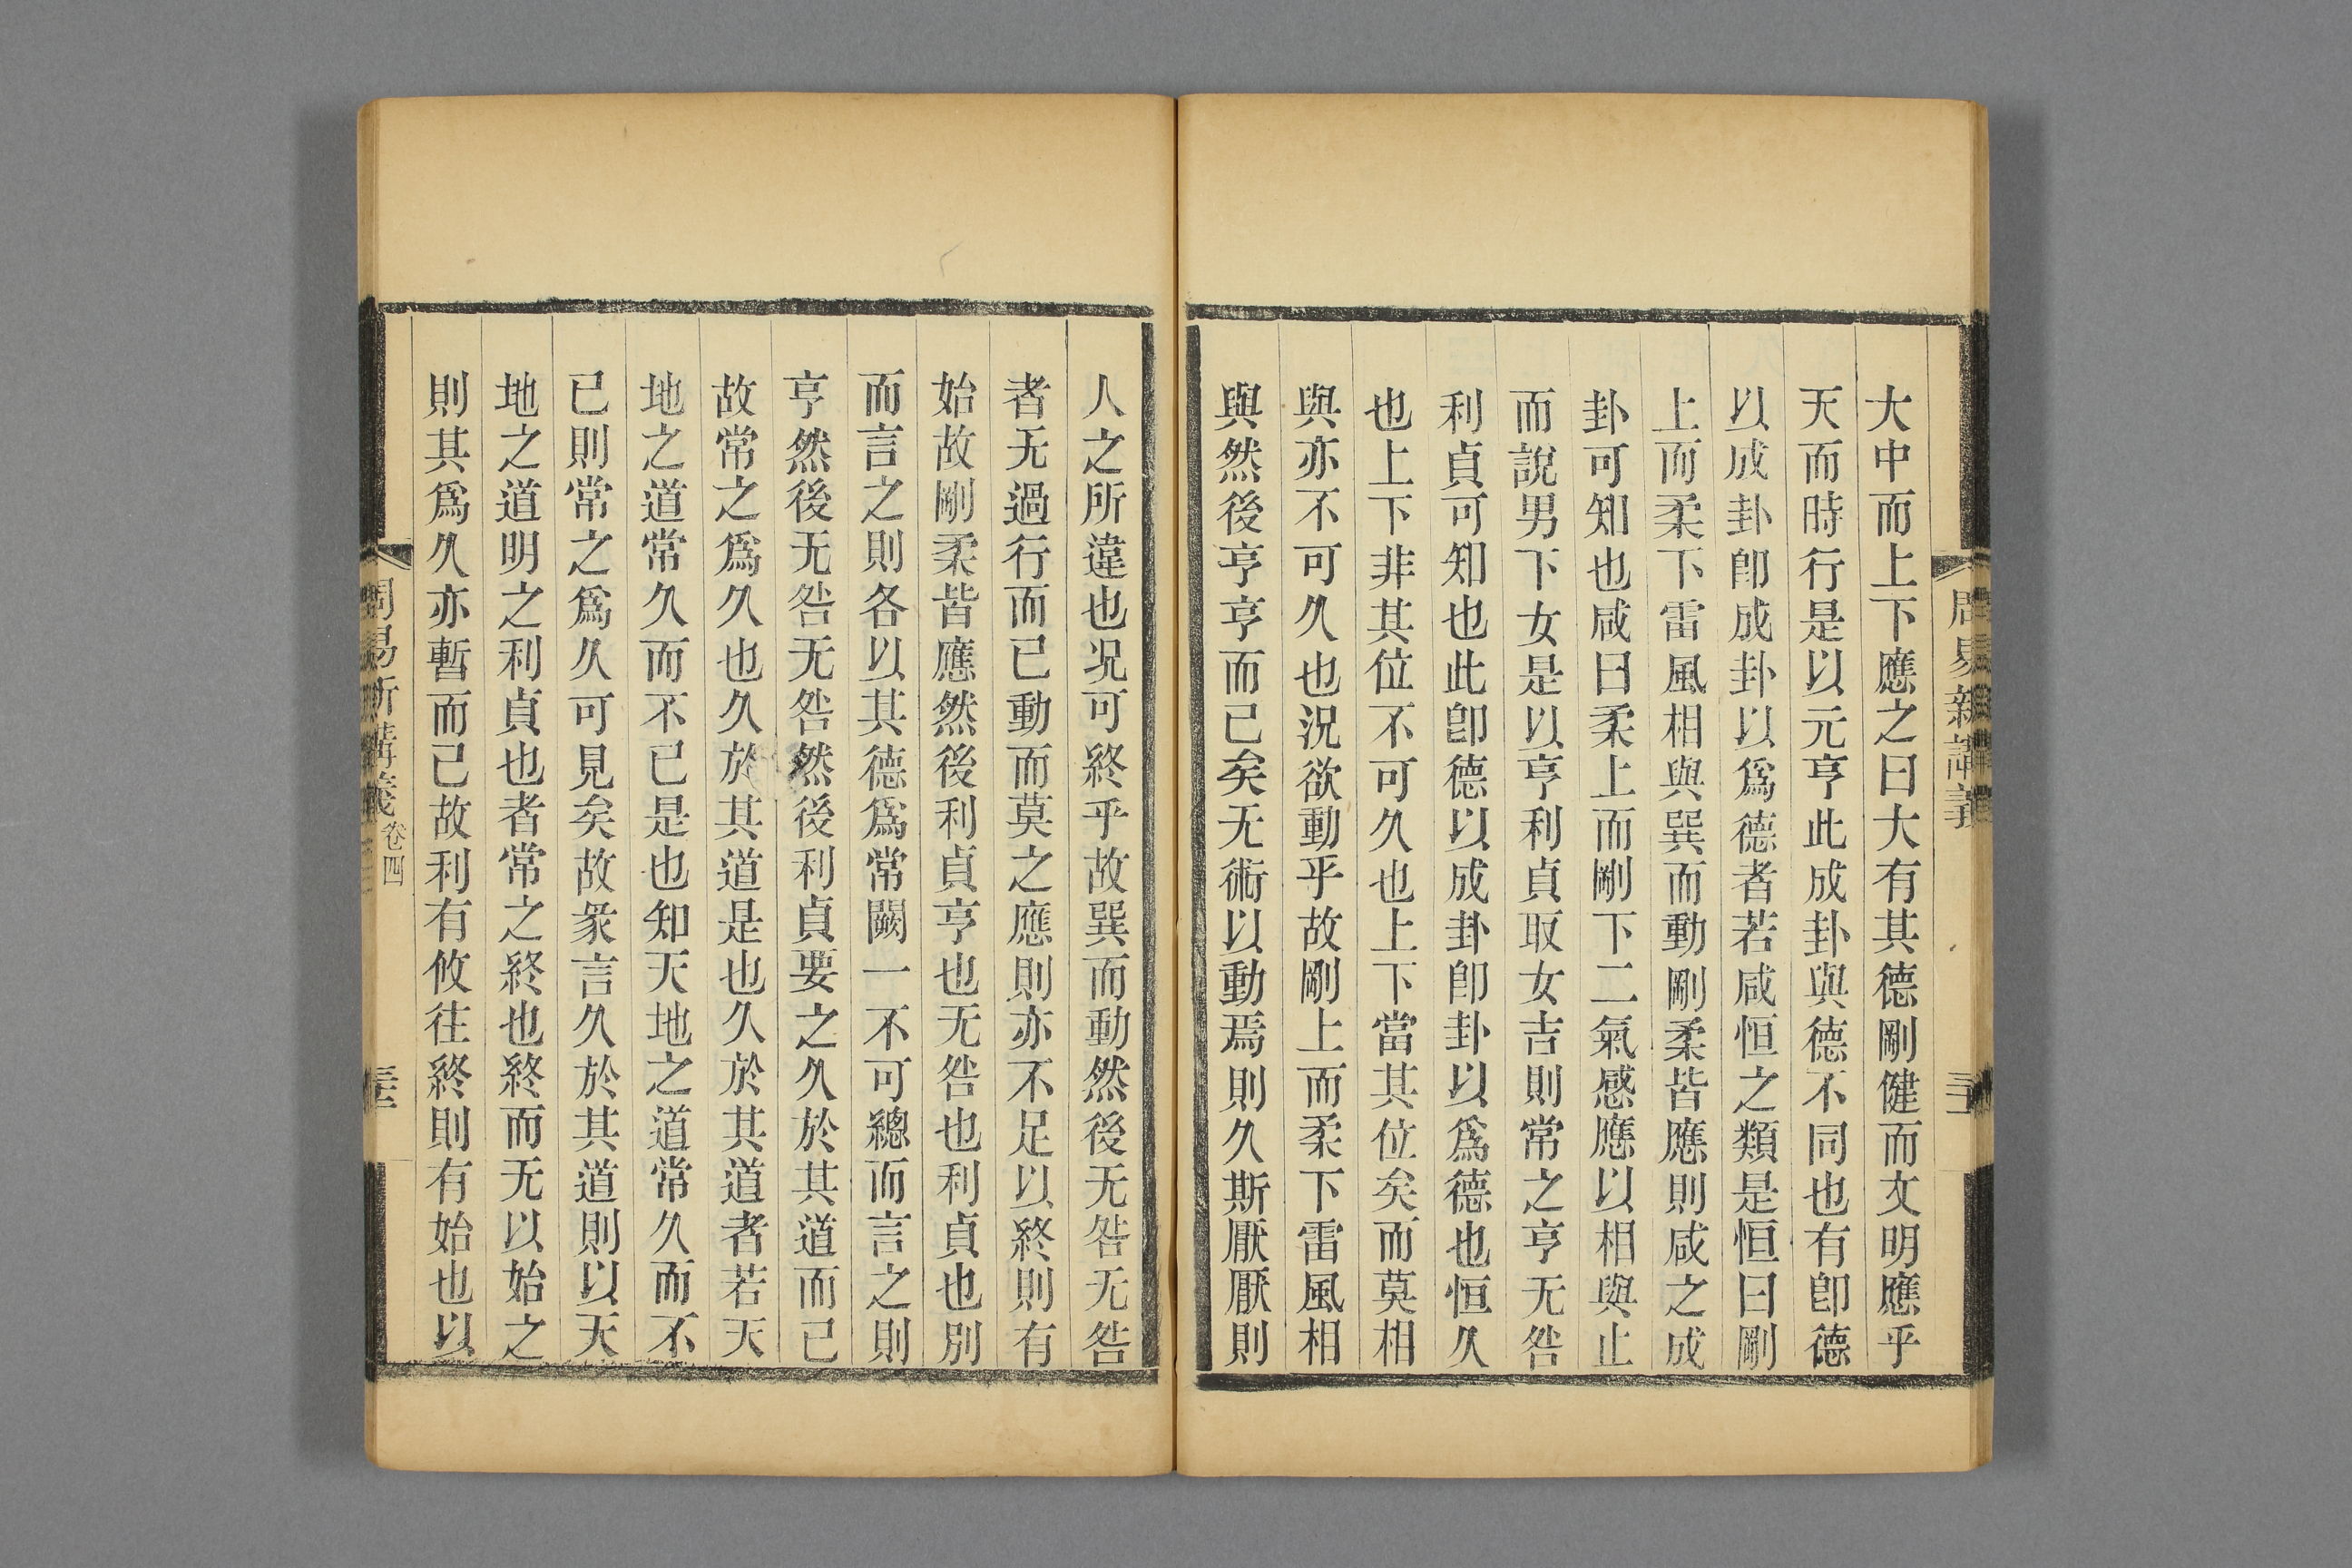 大中而上下應之曰大有其德剛健而文明應乎
天而時行是以元亨此成卦與德不同也有卽德
以成卦卽成卦以爲德者若咸恒之類是恒曰剛
上而柔下雷風相與巽而動剛柔皆應則咸之成
卦可知也咸曰柔上而剛下二氣感應以相與止
而說男下女是以亨利貞取女吉則常之亨无咎
利貞可知也此卽德以成卦卽卦以爲德也恒久
也上下非其位不可久也上下當其位矣而莫相
與亦不可久也況欲動乎故剛上而柔下雷風相
與然後亨亨而已矣无術以動焉則久斯厭厭則
人之所違也况可終乎故巽而動然後无咎无咎
者无過行而已動而莫之應則亦不足以終則有
始故剛柔皆應然後利貞亨也无咎也利貞也別
而言之則各以其德爲常闕一不可總而言之則
亨然後无咎无咎然後利貞要之久於其道而已
故常之爲久也久於其道是也久於其道者若天
地之道常久而不已是也知天地之道常久而不
已則常之爲久可見矣故彖言久於其道則以天
地之道明之利貞也者常之終也終而无以始之
則其爲久亦暫而已故利有攸往終則有始也以
周易新講義 卷四